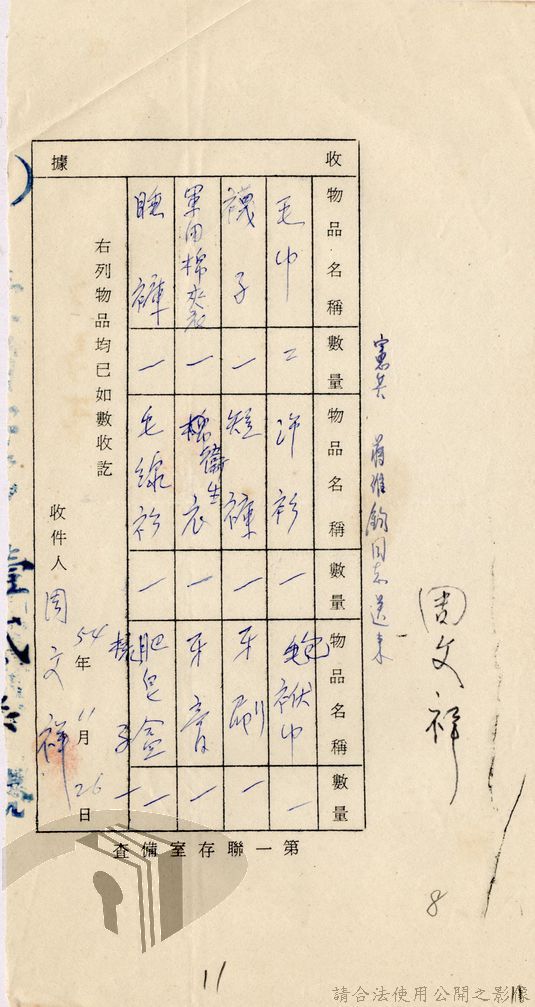 周文祥
憲兵 蔣維鈞同志送來
收據
物品名稱 數量 物品名稱 數量 物品名稱 數量
毛巾 二 汗衫 一 包袱巾 一
襪子 一 短褲 一 牙刷 一
軍用棉夾衣 一 棉衛生衣 一 牙膏 一
睡褲 一 毛線衫 一 肥皂盒 一
子 一
右列物品均已如數收訖
收件人 周文祥
54年11月26日
第一聯存室備查
8
11
請合法使用公開之影像